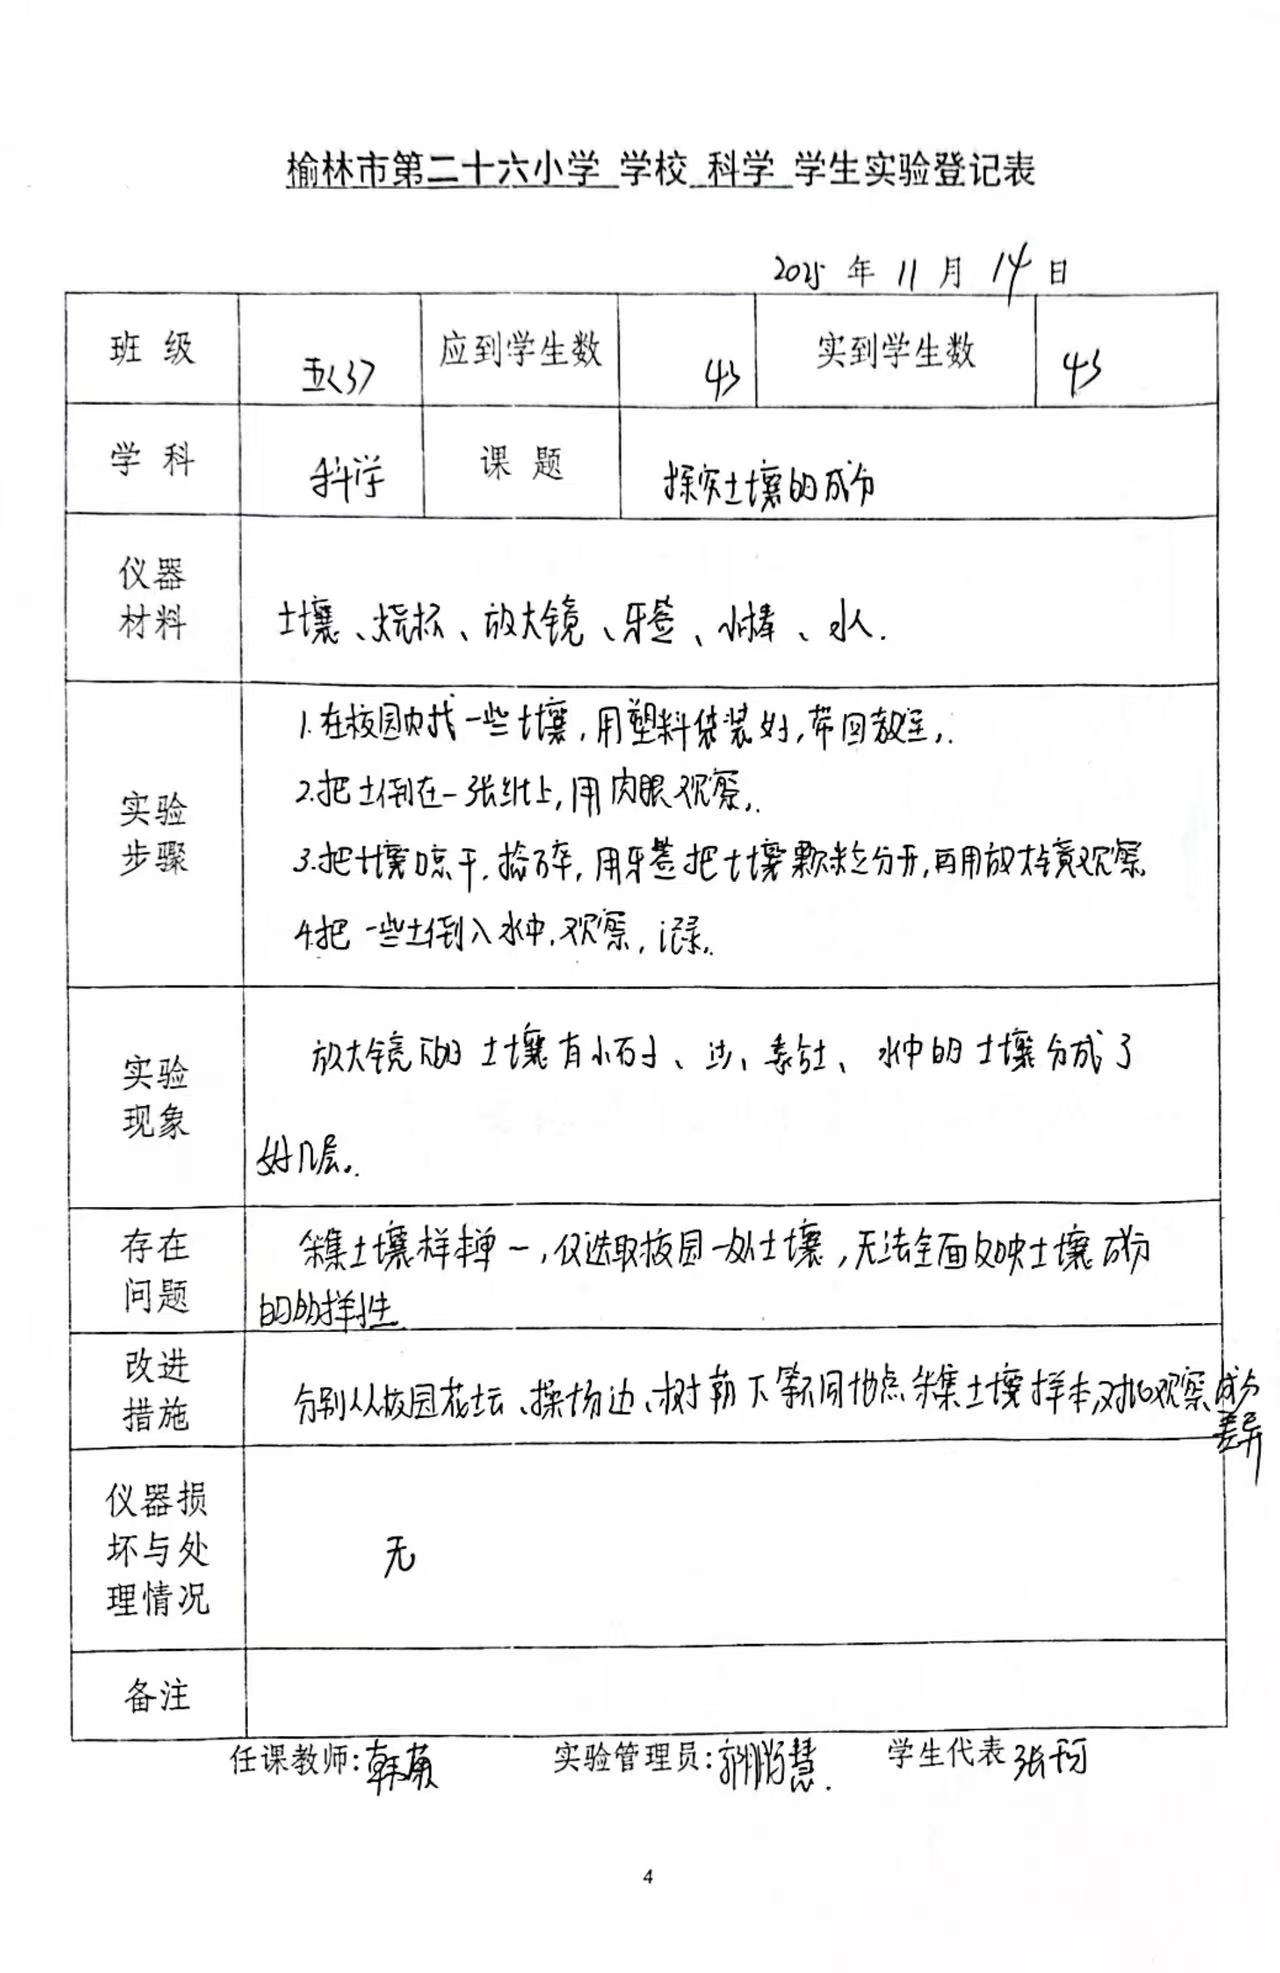 榆林市第二十六小学 学校 科学 学生实验登记表
2025 年 11 月 14 日
班 级 五(3) 应到学生数 43 实到学生数 43
学 科 科学 课 题 探究土壤的成分
仪器
材料
土壤、烧杯、放大镜、牙签、水棒、水.
实验
步骤
1.在校园内找一些土壤,用塑料袋装好,带回教室,.
2.把土倒在一张纸上,用肉眼观察,.
3.把土壤晾干,捻碎,用牙签把土壤颗粒分开,再用放大镜观察
4.把一些土倒入水中,观察,记录,.
实验
现象
放大镜下的土壤有小石子、沙、黏土、水中的土壤分成了
好几层。.
存在
问题
采集土壤样单一,仅选取校园一处土壤,无法全面反映土壤成分
的多样性
改进
措施
分别从校园花坛、操场边、树荫下等不同地点采集土壤样本,对比观察成分
差异
仪器损
坏与处
理情况
无
备注
任课教师: 实验管理员: 学生代表
4